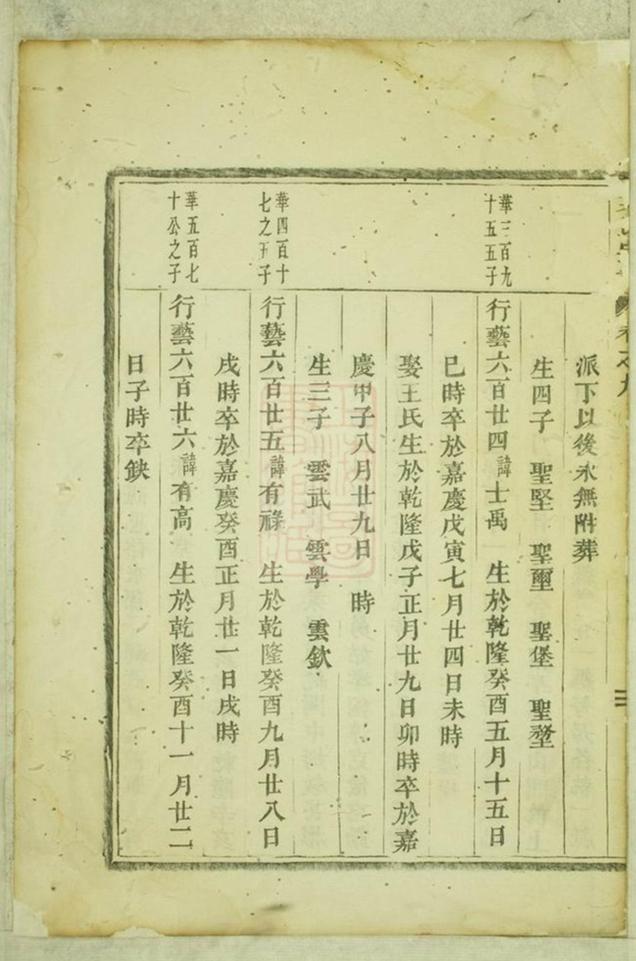 卷之九
派下以後永無附葬
生四子 聖堅 聖壐 聖堡 聖壑
華三百九十五五子
行藝六百廿四諱士禹 生於乾隆癸酉五月十五日
巳時卒於嘉慶戊寅七月廿四日未時
娶王氏生於乾隆戊子正月廿九日卯時卒於嘉
慶甲子八月廿九日 時
生三子 雲武 雲學 雲欽
華四百十七之五子
行藝六百廿五諱有祿 生於乾隆癸酉九月廿八日
戌時卒於嘉慶癸酉正月廿一日戌時
華五百七十公之子
行藝六百廿六諱有高 生於乾隆癸酉十一月廿二
日子時卒缺